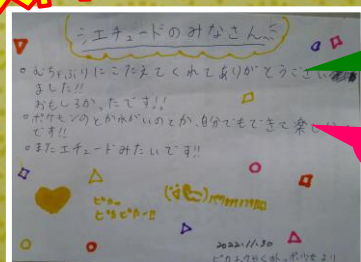 エチュードのみなさん
・むちゃぶりにこたえてくれてありがとうござい
ました!!
おもしろかったです!!
・ポケモンのとか
のとか、自分でもできて楽し
です!!
・またエチュードみたいです!!
ピカー
2022.11.30
より